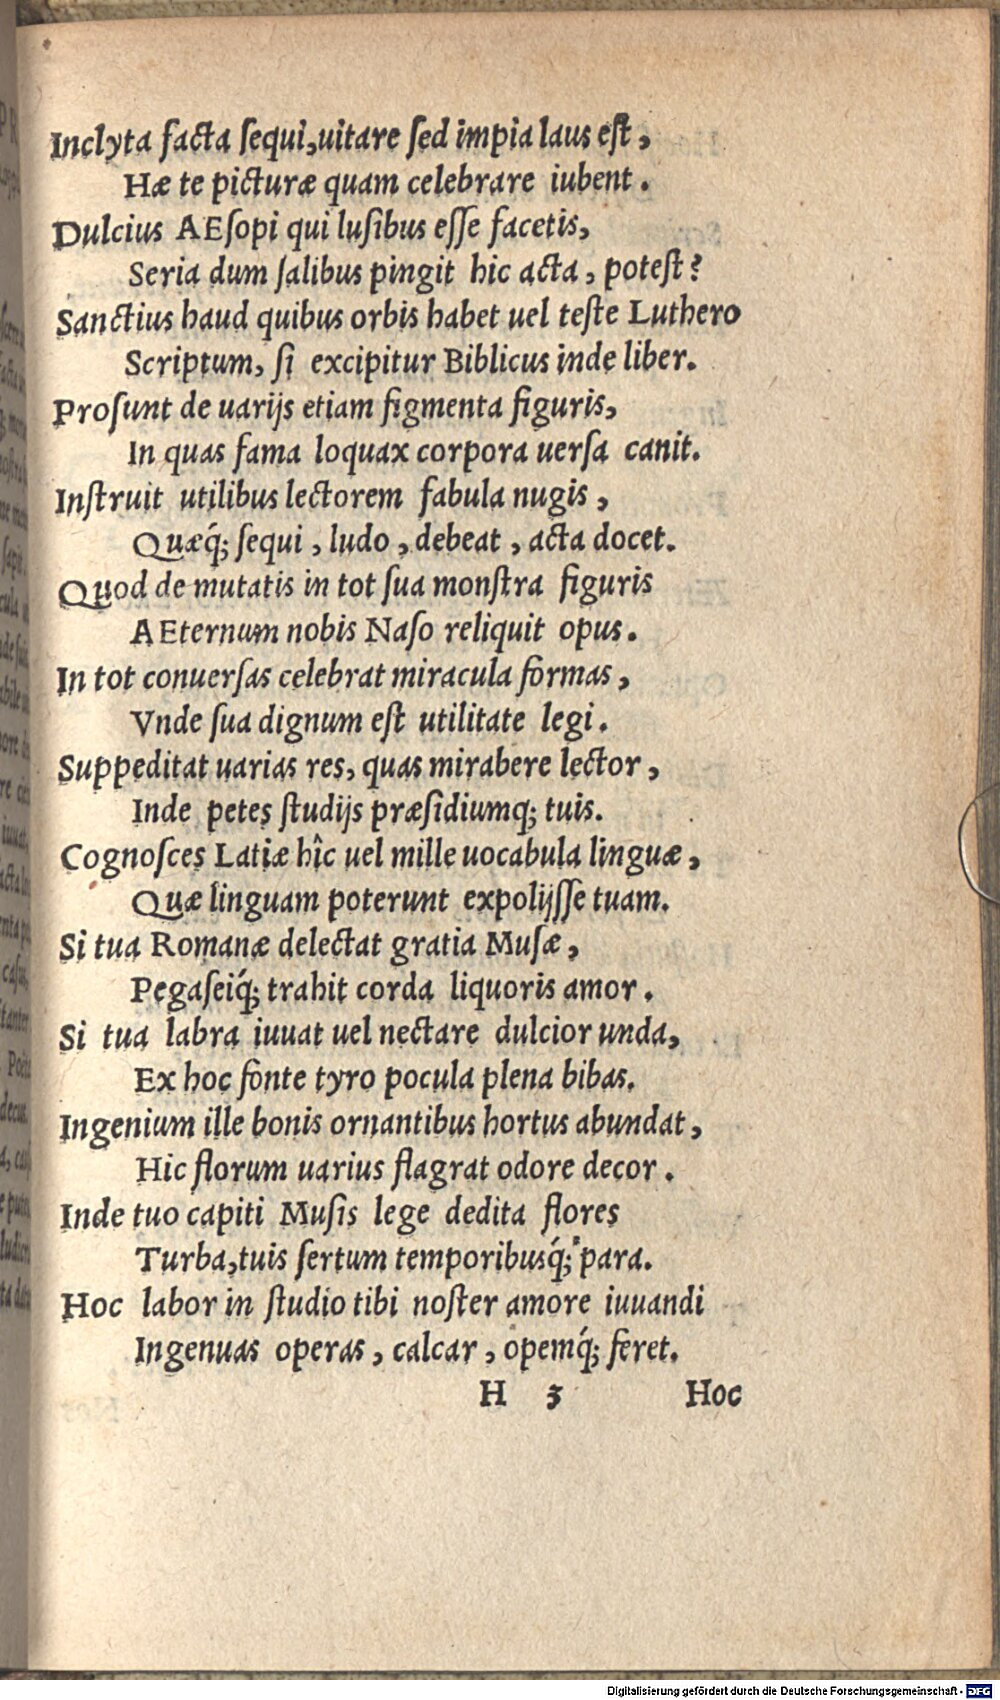 Inclyta facta ſequi,uitare ſed impia laus eſt,
Hæ te picturæ quam celebrare iubent.
Dulcius AEſopi qui luſibus eſſe facetis,
Seria dum ſalibus pingit hic acta, poteſt?
Sanctius haud quibus orbis habet uel teſte Luthero
Scriptum, ſi excipitur Biblicus inde liber.
Proſunt de uarijs etiam figmenta figuris,
In quas fama loquax corpora uerſa canit.
Inſtruit utilibus lectorem fabula nugis,
Quæq́; ſequi, ludo, debeat, acta docet.
Quod de mutatis in tot ſua monſtra figuris
AEternum nobis Naſo reliquit opus.
In tot conuerſas celebrat miracula formas,
Vnde ſua dignum eſt utilitate legi.
Suppeditat uarias res, quas mirabere lector,
Inde petes ſtudijs præſidiumq; tuis.
Cognoſces Latiæ hîc uel mille uocabula linguæ,
Quæ linguam poterunt expolijſſe tuam.
Si tua Romanæ delectat gratia Muſæ,
Pegaſeiq́; trahit corda liquoris amor.
Si tua labra iuuat uel nectare dulcior unda,
Ex hoc fonte tyro pocula plena bibas.
Ingenium ille bonis ornantibus hortus abundat,
Hic florum uarius flagrat odore decor.
Inde tuo capiti Muſis lege dedita flores
Turba,tuis ſertum temporibusq́; para.
Hoc labor in ſtudio tibi noſter amore iuuandi
Ingenuas operas, calcar, opemq́; feret.
H 3 Hoc
Digitalisierung gefördert durch die Deutsche Forschungsgemeinschaft - DFG